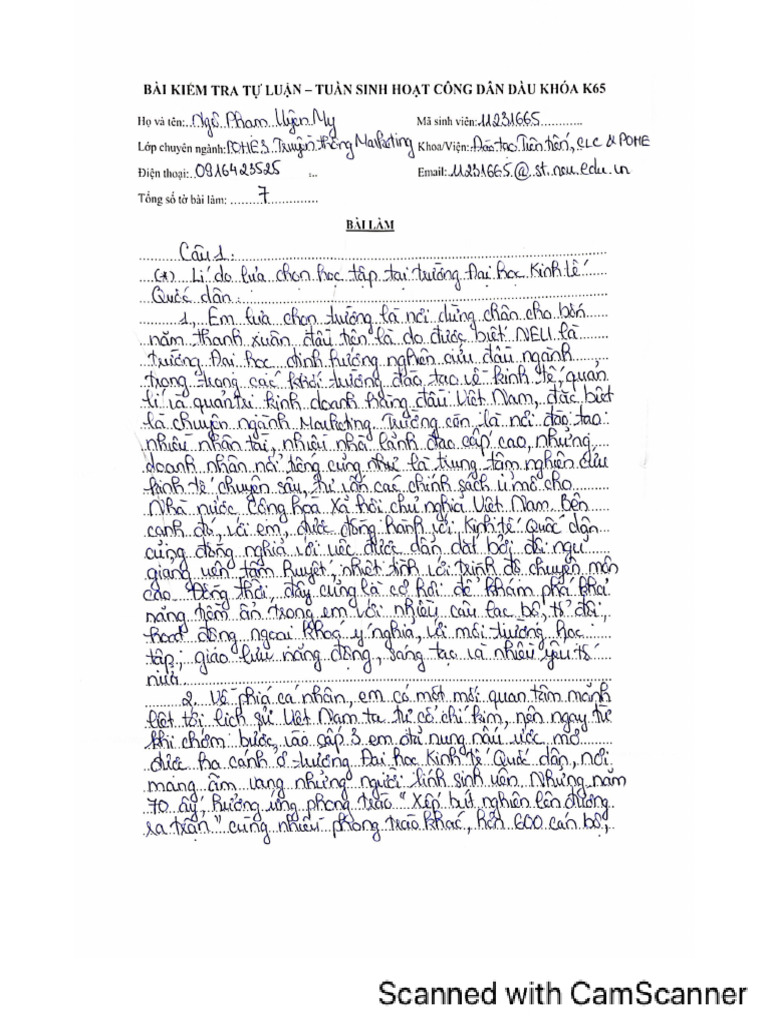 BÀI KIỂM TRA TỰ LUẬN – TUẦN SINH HOẠT CÔNG DÂN ĐẦU KHÓA K65
Họ và tên: Ngô Phạm Uyên My Mã sinh viên: 11231665
Lớp chuyên ngành: POHE3 Truyền thông Marketing Khoa/Viện: Đào tạo Tiên tiến, CLC & POHE
Điện thoại: 0916423525 Email: 11231665@st.neu.edu.vn
Tổng số tờ bài làm: 7
BÀI LÀM
Câu 1:
(*) Lí do lựa chọn học tập tại trường Đại học Kinh tế
Quốc dân:
1, Em lựa chọn trường là nơi dừng chân cho bốn
năm thanh xuân đầu tiên là do được biết NEU là
trường Đại học định hướng nghiên cứu đầu ngành
trong trong các khối trường đào tạo về kinh tế, quản
lí và quản trị kinh doanh hàng đầu Việt Nam, đặc biệt
là chuyên ngành Marketing. Trường còn là nơi đào tạo
nhiều nhân tài, nhiều nhà lãnh đạo cấp cao, những
doanh nhân nổi tiếng cũng như là trung tâm nghiên cứu
kinh tế chuyên sâu, tư vấn các chính sách vĩ mô cho
Nhà nước Cộng hoà Xã hội chủ nghĩa Việt Nam. Bên
cạnh đó, với em, được đồng hành với Kinh tế Quốc dân
cũng đồng nghĩa với việc được dẫn dắt bởi đội ngũ
giảng viên tâm huyết, nhiệt tình với trình độ chuyên môn
cao. Đồng thời, đây cũng là cơ hội để khám phá khả
năng tiềm ẩn trong em với nhiều câu lạc bộ, tổ đội,
hoạt động ngoại khoá ý nghĩa, với môi trường học
tập, giao lưu năng động, sáng tạo và nhiều yếu tố
nữa.
2, Về phía cá nhân, em có một mối quan tâm mãnh
liệt tới lịch sử Việt Nam ta từ cổ chí kim, nên ngay từ
khi chớm bước vào cấp 3 em đã nung nấu ước mơ
được hạ cánh ở trường Đại học Kinh tế Quốc dân, nơi
mang âm vang những người lính sinh viên. Những năm
70 ấy, hưởng ứng phong trào "Xếp bút nghiên lên đường
ra trận" cùng nhiều phong trào khác, hơn 600 cán bộ,
Scanned with CamScanner